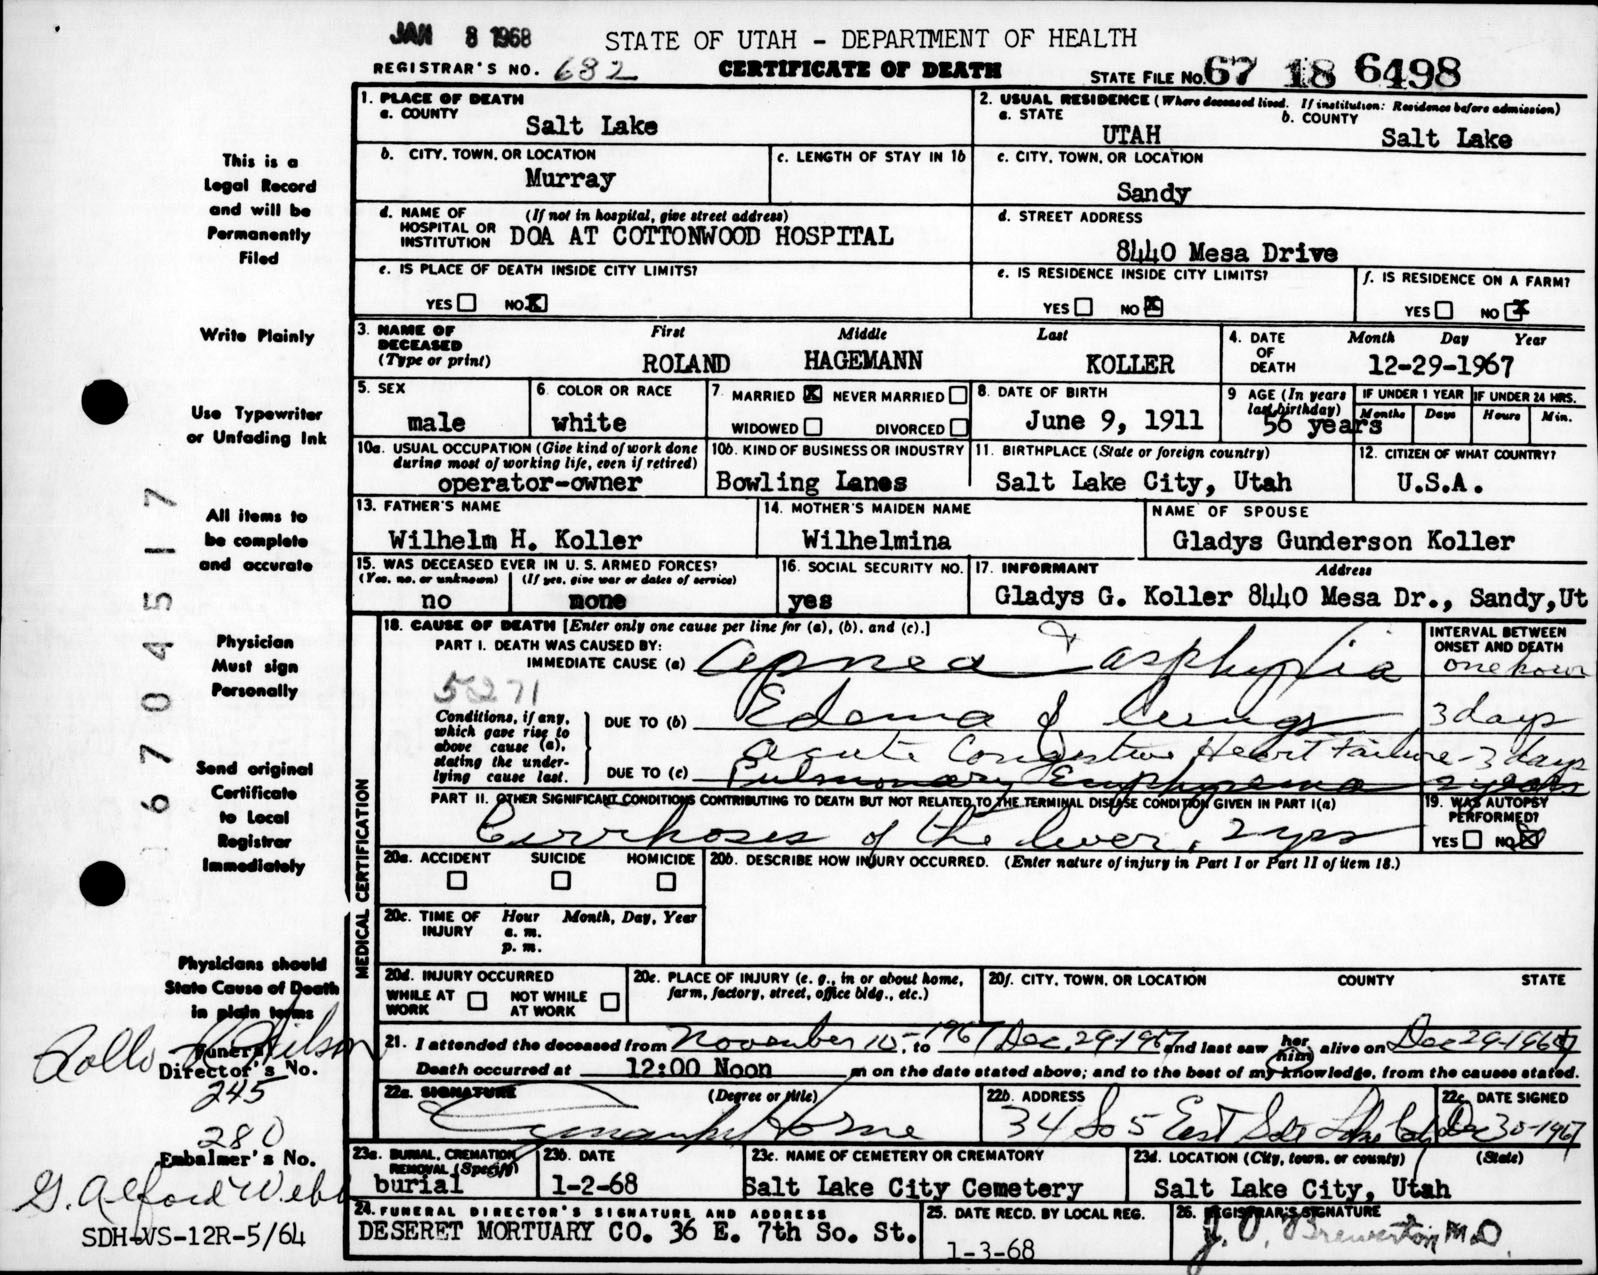 JAN 8 1968
STATE OF UTAH - DEPARTMENT OF HEALTH
REGISTRAR'S NO. 682
CERTIFICATE OF DEATH
STATE FILE NO. 67 18 6498
This is a
Legal Record
and will be
Permanently
Filed
Write Plainly
Use Typewriter
or Unfading Ink
All items to
be complete
and accurate
Physician
Must sign
Personally
Send original
Certificate
to Local
Registrar
Immediately
Physicians should
State Cause of Death
in plain terms
Funeral
Director's No.
245
280
Embalmer's No.
G. Alford Webb
SDH-VS-12R-5/64
670 4517
1. PLACE OF DEATH
a. COUNTY
Salt Lake
b. CITY, TOWN, OR LOCATION
Murray
c. LENGTH OF STAY IN 1b
d. NAME OF HOSPITAL OR INSTITUTION
(If not in hospital, give street address)
DOA AT COTTONWOOD HOSPITAL
e. IS PLACE OF DEATH INSIDE CITY LIMITS?
YES NO X
2. USUAL RESIDENCE (Where deceased lived. If institution: Residence before admission)
a. STATE
UTAH
b. COUNTY
Salt Lake
c. CITY, TOWN, OR LOCATION
Sandy
d. STREET ADDRESS
8440 Mesa Drive
e. IS RESIDENCE INSIDE CITY LIMITS?
YES NO X
f. IS RESIDENCE ON A FARM?
YES NO X
3. NAME OF DECEASED (Type or print)
First Middle Last
ROLAND HAGEMANN KOLLER
4. DATE OF DEATH
Month Day Year
12-29-1967
5. SEX
male
6. COLOR OR RACE
white
7. MARRIED X NEVER MARRIED
WIDOWED DIVORCED
8. DATE OF BIRTH
June 9, 1911
9 AGE (In years last birthday)
56 years
IF UNDER 1 YEAR
Months Days
IF UNDER 24 HRS.
Hours Min.
10a. USUAL OCCUPATION (Give kind of work done during most of working life, even if retired)
operator-owner
10b. KIND OF BUSINESS OR INDUSTRY
Bowling Lanes
11. BIRTHPLACE (State or foreign country)
Salt Lake City, Utah
12. CITIZEN OF WHAT COUNTRY?
U.S.A.
13. FATHER'S NAME
Wilhelm H. Koller
14. MOTHER'S MAIDEN NAME
Wilhelmina
NAME OF SPOUSE
Gladys Gunderson Koller
15. WAS DECEASED EVER IN U. S. ARMED FORCES?
(Yes, no, or unknown) (If yes, give war or dates of service)
no none
16. SOCIAL SECURITY NO.
yes
17. INFORMANT Address
Gladys G. Koller 8440 Mesa Dr., Sandy, Ut
MEDICAL CERTIFICATION
18. CAUSE OF DEATH [Enter only one cause per line for (a), (b), and (c).]
PART I. DEATH WAS CAUSED BY:
IMMEDIATE CAUSE (a) Apnea & asphyxia
INTERVAL BETWEEN ONSET AND DEATH
one hour
5271
Conditions, if any, which gave rise to above cause (a), stating the underlying cause last.
DUE TO (b) Edema of lungs 3 days
acute Congestive Heart Failure - 3 days
DUE TO (c) Pulmonary Emphysema 2 years
PART II. OTHER SIGNIFICANT CONDITIONS CONTRIBUTING TO DEATH BUT NOT RELATED TO THE TERMINAL DISEASE CONDITION GIVEN IN PART I(a)
Cirrhoses of the liver, 2 yrs
19. WAS AUTOPSY PERFORMED?
YES NO X
20a. ACCIDENT SUICIDE HOMICIDE
20b. DESCRIBE HOW INJURY OCCURRED. (Enter nature of injury in Part I or Part II of item 18.)
20c. TIME OF INJURY Hour Month, Day, Year
a. m.
p. m.
20d. INJURY OCCURRED
WHILE AT WORK NOT WHILE AT WORK
20e. PLACE OF INJURY (e. g., in or about home, farm, factory, street, office bldg., etc.)
20f. CITY, TOWN, OR LOCATION COUNTY STATE
21. I attended the deceased from November 10, 1967 to Dec. 29-1967 and last saw her him alive on Dec 29-1967
Death occurred at 12:00 Noon m on the date stated above; and to the best of my knowledge, from the causes stated.
22a. SIGNATURE (Degree or title)
Horne
22b. ADDRESS
34 So 5 East Salt Lake City
22c. DATE SIGNED
Dec 30-1967
23a. BURIAL, CREMATION REMOVAL (Specify)
burial
23b. DATE
1-2-68
23c. NAME OF CEMETERY OR CREMATORY
Salt Lake City Cemetery
23d. LOCATION (City, town, or county) (State)
Salt Lake City, Utah
24. FUNERAL DIRECTOR'S SIGNATURE AND ADDRESS
DESERET MORTUARY CO. 36 E. 7th So. St.
25. DATE RECD. BY LOCAL REG.
1-3-68
26. REGISTRAR'S SIGNATURE
J. O. Brewerton M.D.